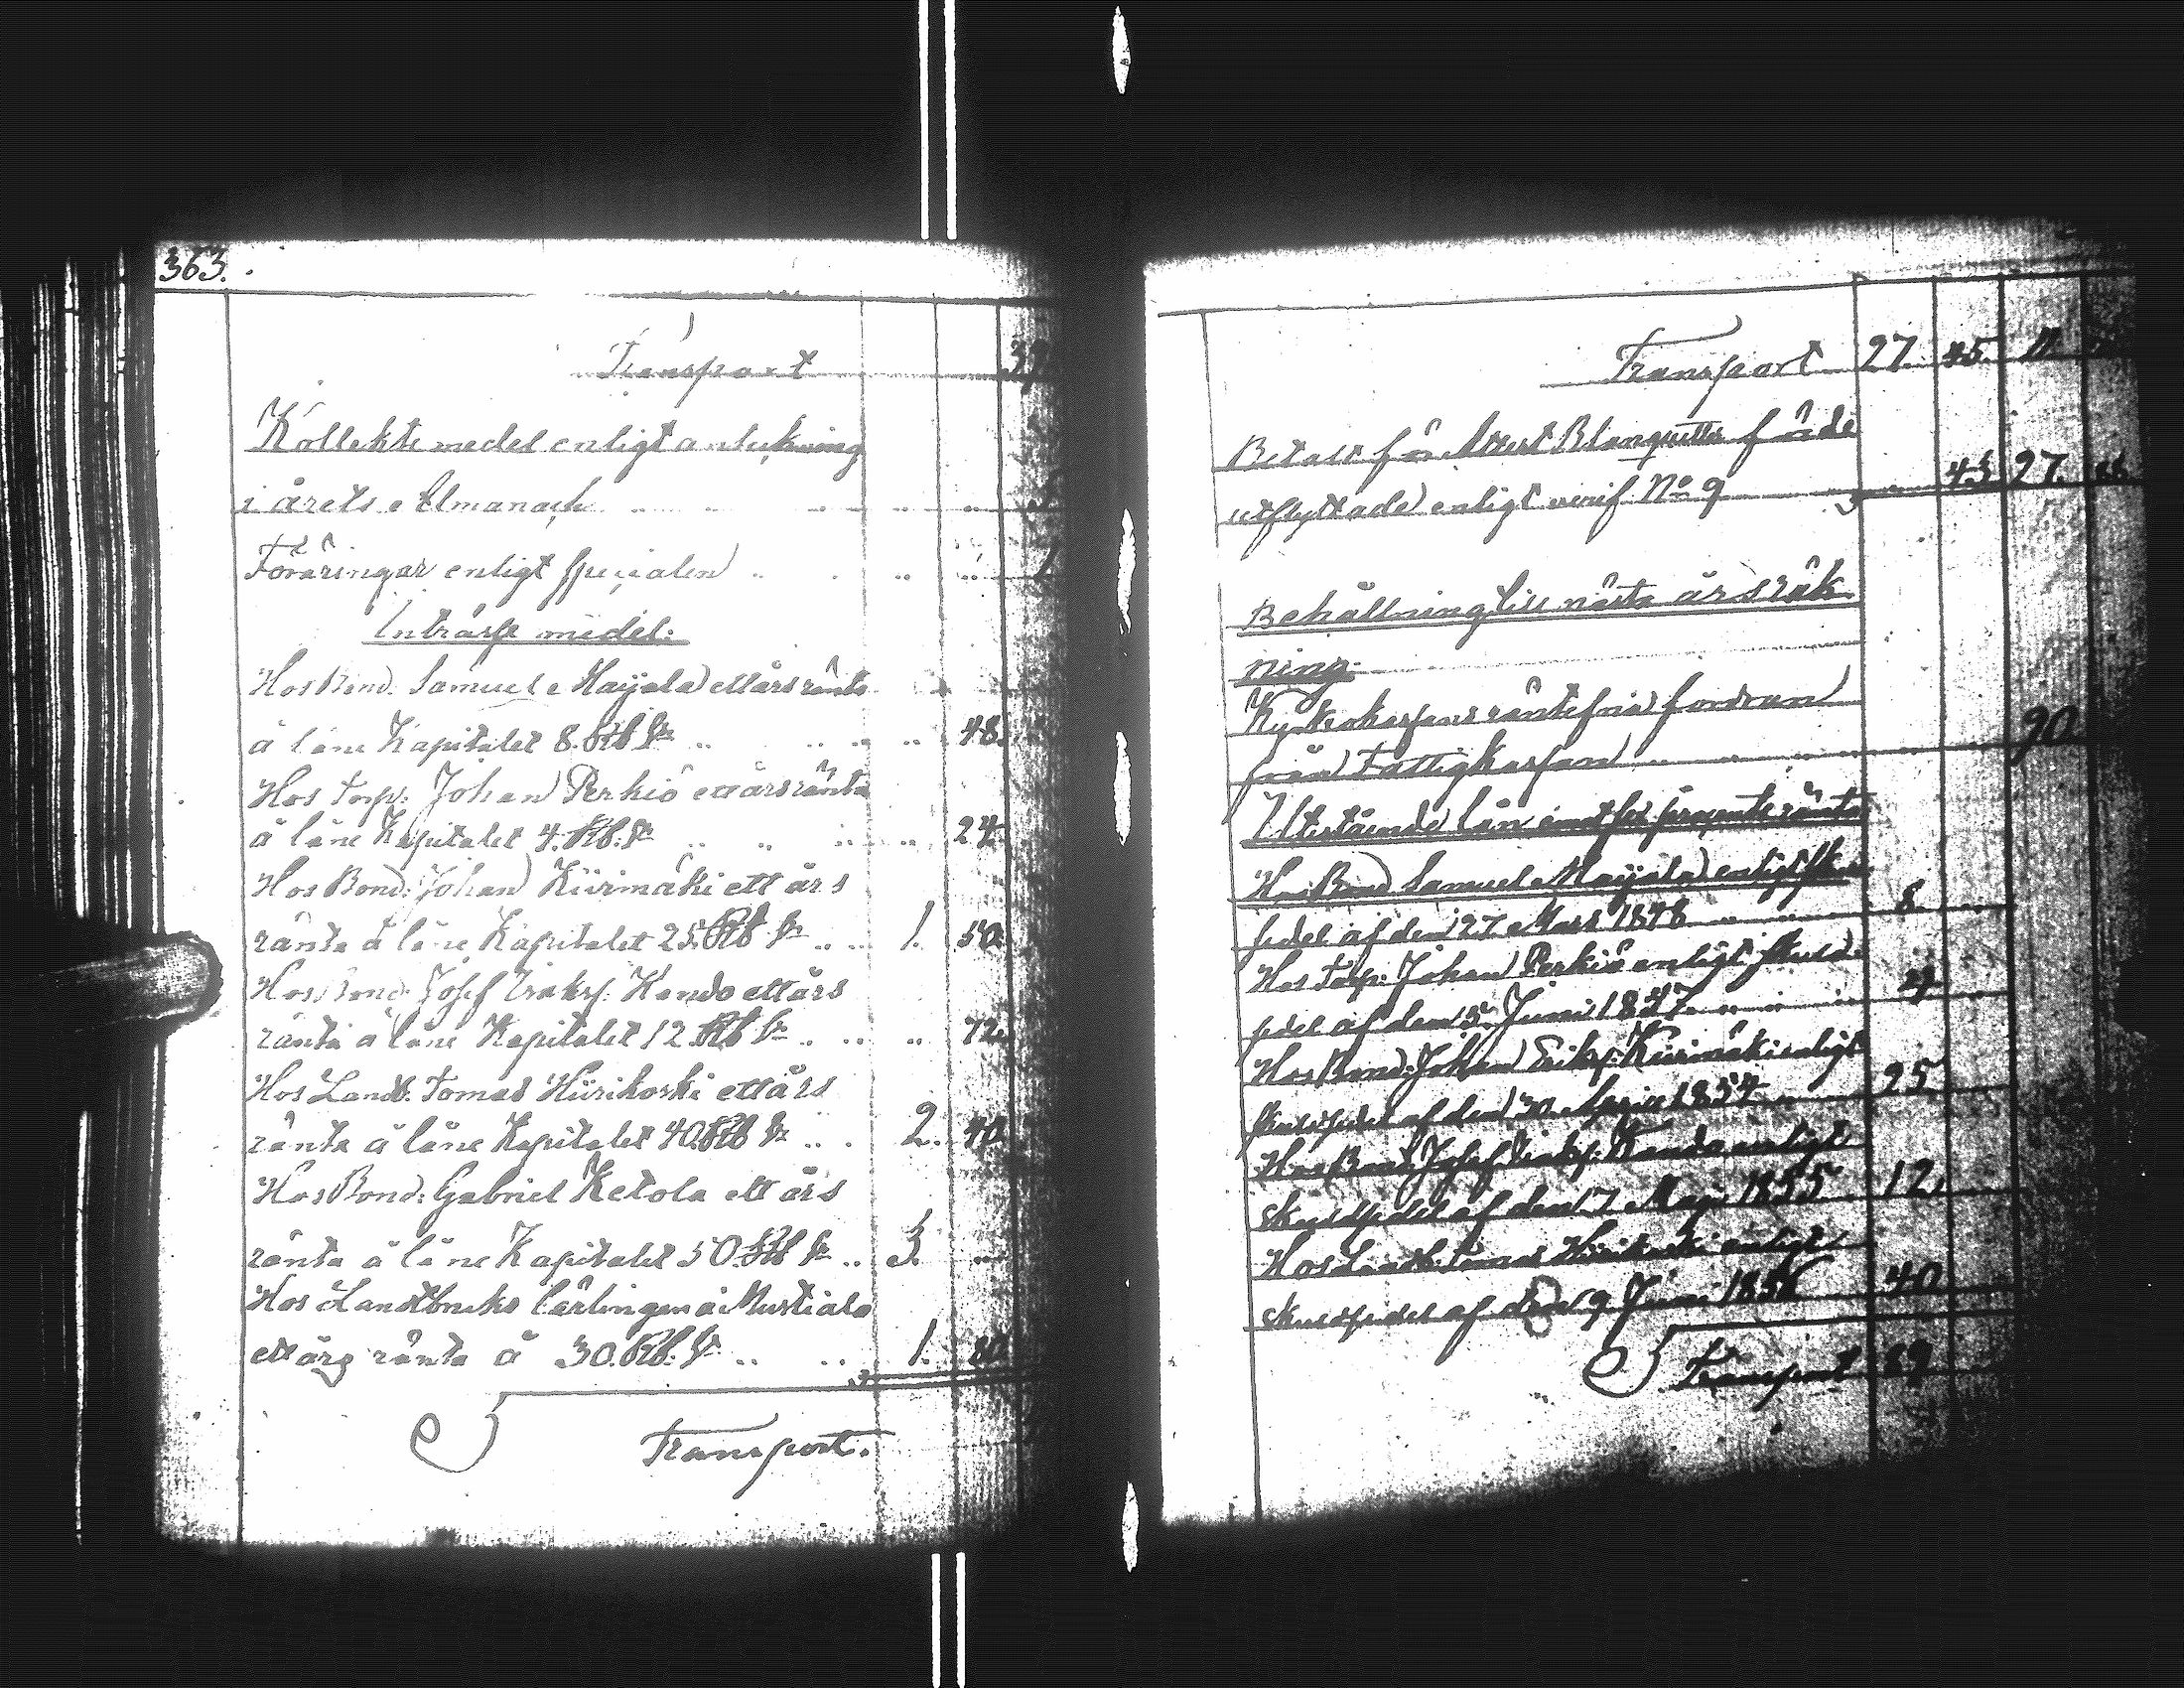 363.
Transport 37
Kollekte medel enligt anteckning
i årets Almanach
Föräringar enligt specialen
Inträsse medel:
Hos Bond. Samuel Maijala ett års ränta
å låne Kapitalet 8. Rb Sr 48.
Hos Torp: Johan Perkiö ett års ränta
å låne Kapitalet 4. Rb. Sr 24
Hos Bond: Johan Kiirimäki ett års
ränta å låne Kapitalet 25. Rb Sr 1. 50
Hos Bond: Josef Eriks. Kando ett års
ränta å låne Kapitalet 12 Rb Sr 72.
Hos Landb. Tomas Hiirikoski ett års
ränta å låne Kapitalet 40. Rb Sr 2. 40
Hos Bond: Gabriel Ketola ett års
ränta å låne Kapitalet 50. Rb Sr 3.
Hos Landtbruks lärlingen å Mustiala
ett års ränta å 30. Rb. Sr 1. 80
Transport.
Transport 27. 45. 11
Betalt för Attest Blanquetter för de
utflyttade enligt verif No 9 43 27.
Behållning till nästa årsräk-
ning.
Kyrkokassans räntefria fordran
från Fattigkassan 90.
Utestående lån emot sex procents ränta
Hos Bond Samuel Maijala enligt
sedel af den 27 Mars 1848 8
Hos Torp: Johan Perkiö enligt skuld-
sedel af den 5 Juni 1847 4
Hos Bond: Johan Eriks. Kiirimäki enligt
skuldsedel af den 30 April 1854 25
Hos Bond: Josef Eriks. Kando enligt
skuldsedel af den 17 Maji 1855 12,
Hos Landb. Tomas Hiirikoski enligt
skuldsedel af den 9 Juni 1856 40
Transport 89